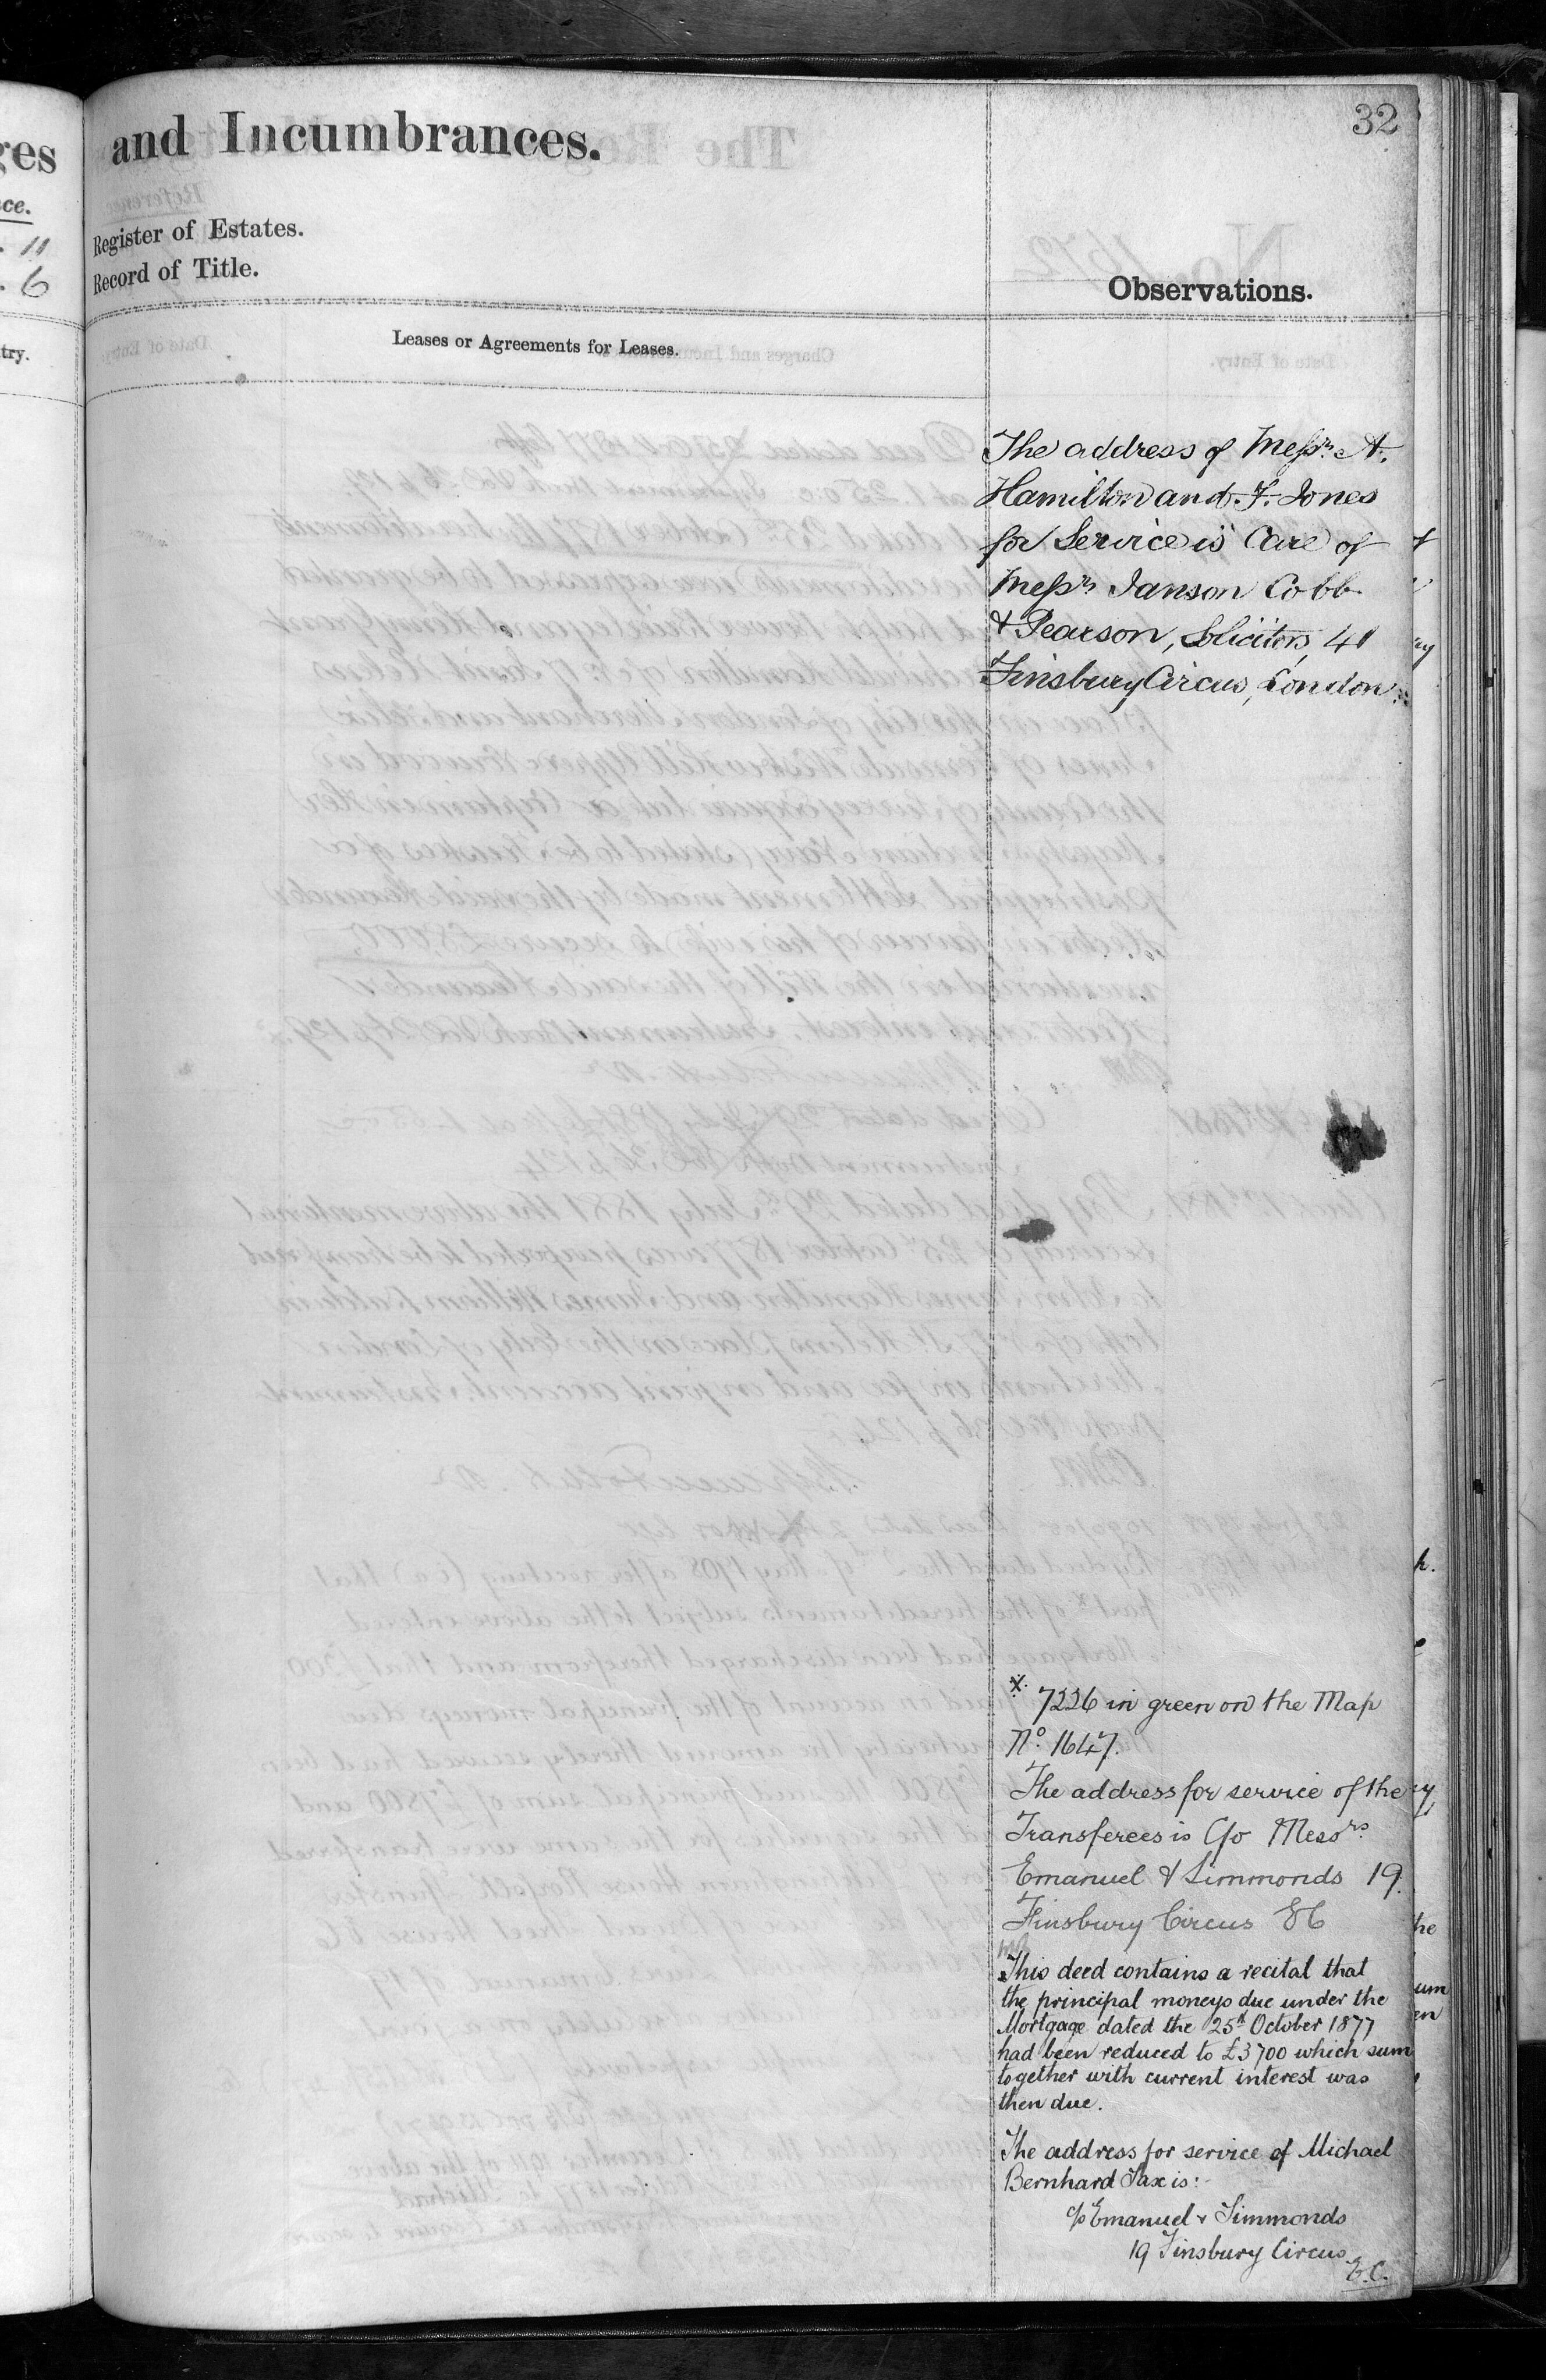 32
ges
and Incumbrances.
ce.
Register of Estates.
. 11
Record of Title.
. 6
Observations.
try.
Leases or Agreements for Leases.
The address of Messrs. A.
Hamilton and F. Jones
for Service is Care of
Messrs Janson Cobb
& Pearson, Solicitors, 41
Finsbury Circus, London.
x. 7226 in green on the Map
No. 1647.
The address for service of the
Transferees is C/o Messrs.
Emanuel & Simmonds 19.
Finsbury Circus EC
This deed contains a recital that
the principal moneys due under the
Mortgage dated the 25th October 1877
had been reduced to £3700 which sum
together with current interest was
then due.
The address for service of Michael
Bernhard Sax is:-
c/o Emanuel & Simmonds
19 Finsbury Circus
E.C.